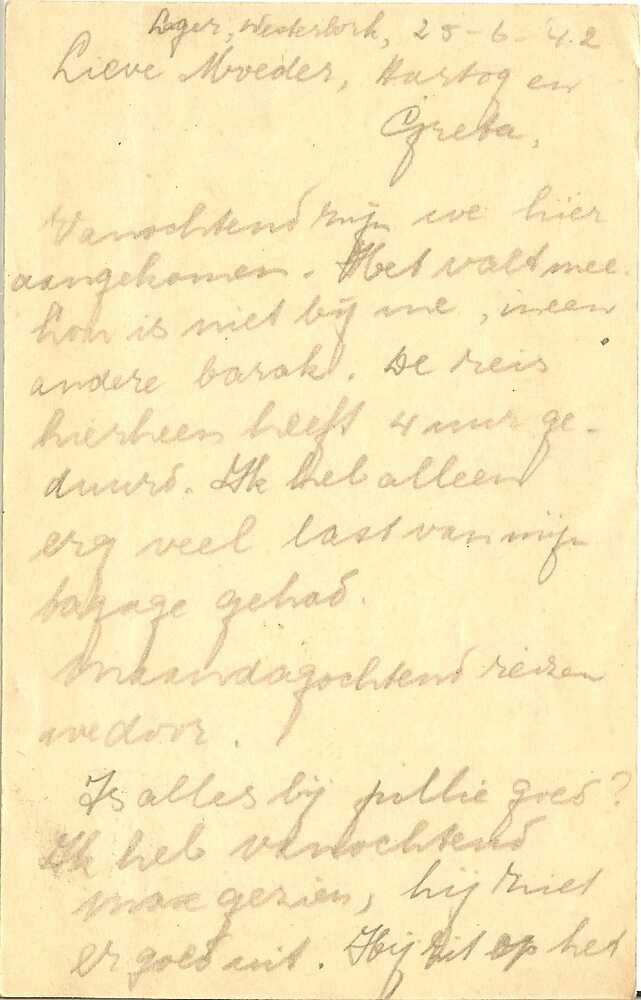 Lager, Westerbork, 25-6-42
Lieve Moeder, Hartog en
Greta,
Vanochtend zijn we hier
aangekomen. Het valt mee.
is niet bij me, in een
andere barak. De reis
hierheen heeft 4 uur ge-
duurd. Ik heb alleen
erg veel last van mijn
bagage gehad.
Maandagochtend reizen
we door.
Is alles bij jullie goed?
Ik heb vanochtend
Max gezien, hij ziet
er goed uit. Hij zit op het